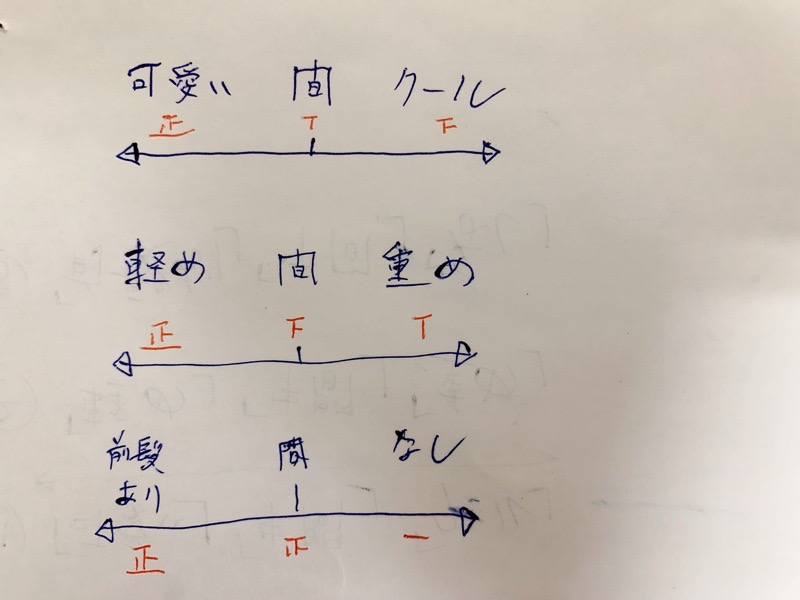 可愛い 間 クール
正 T 下
軽め 間 重め
正 下 T
前髪あり 間 なし
正 正 一